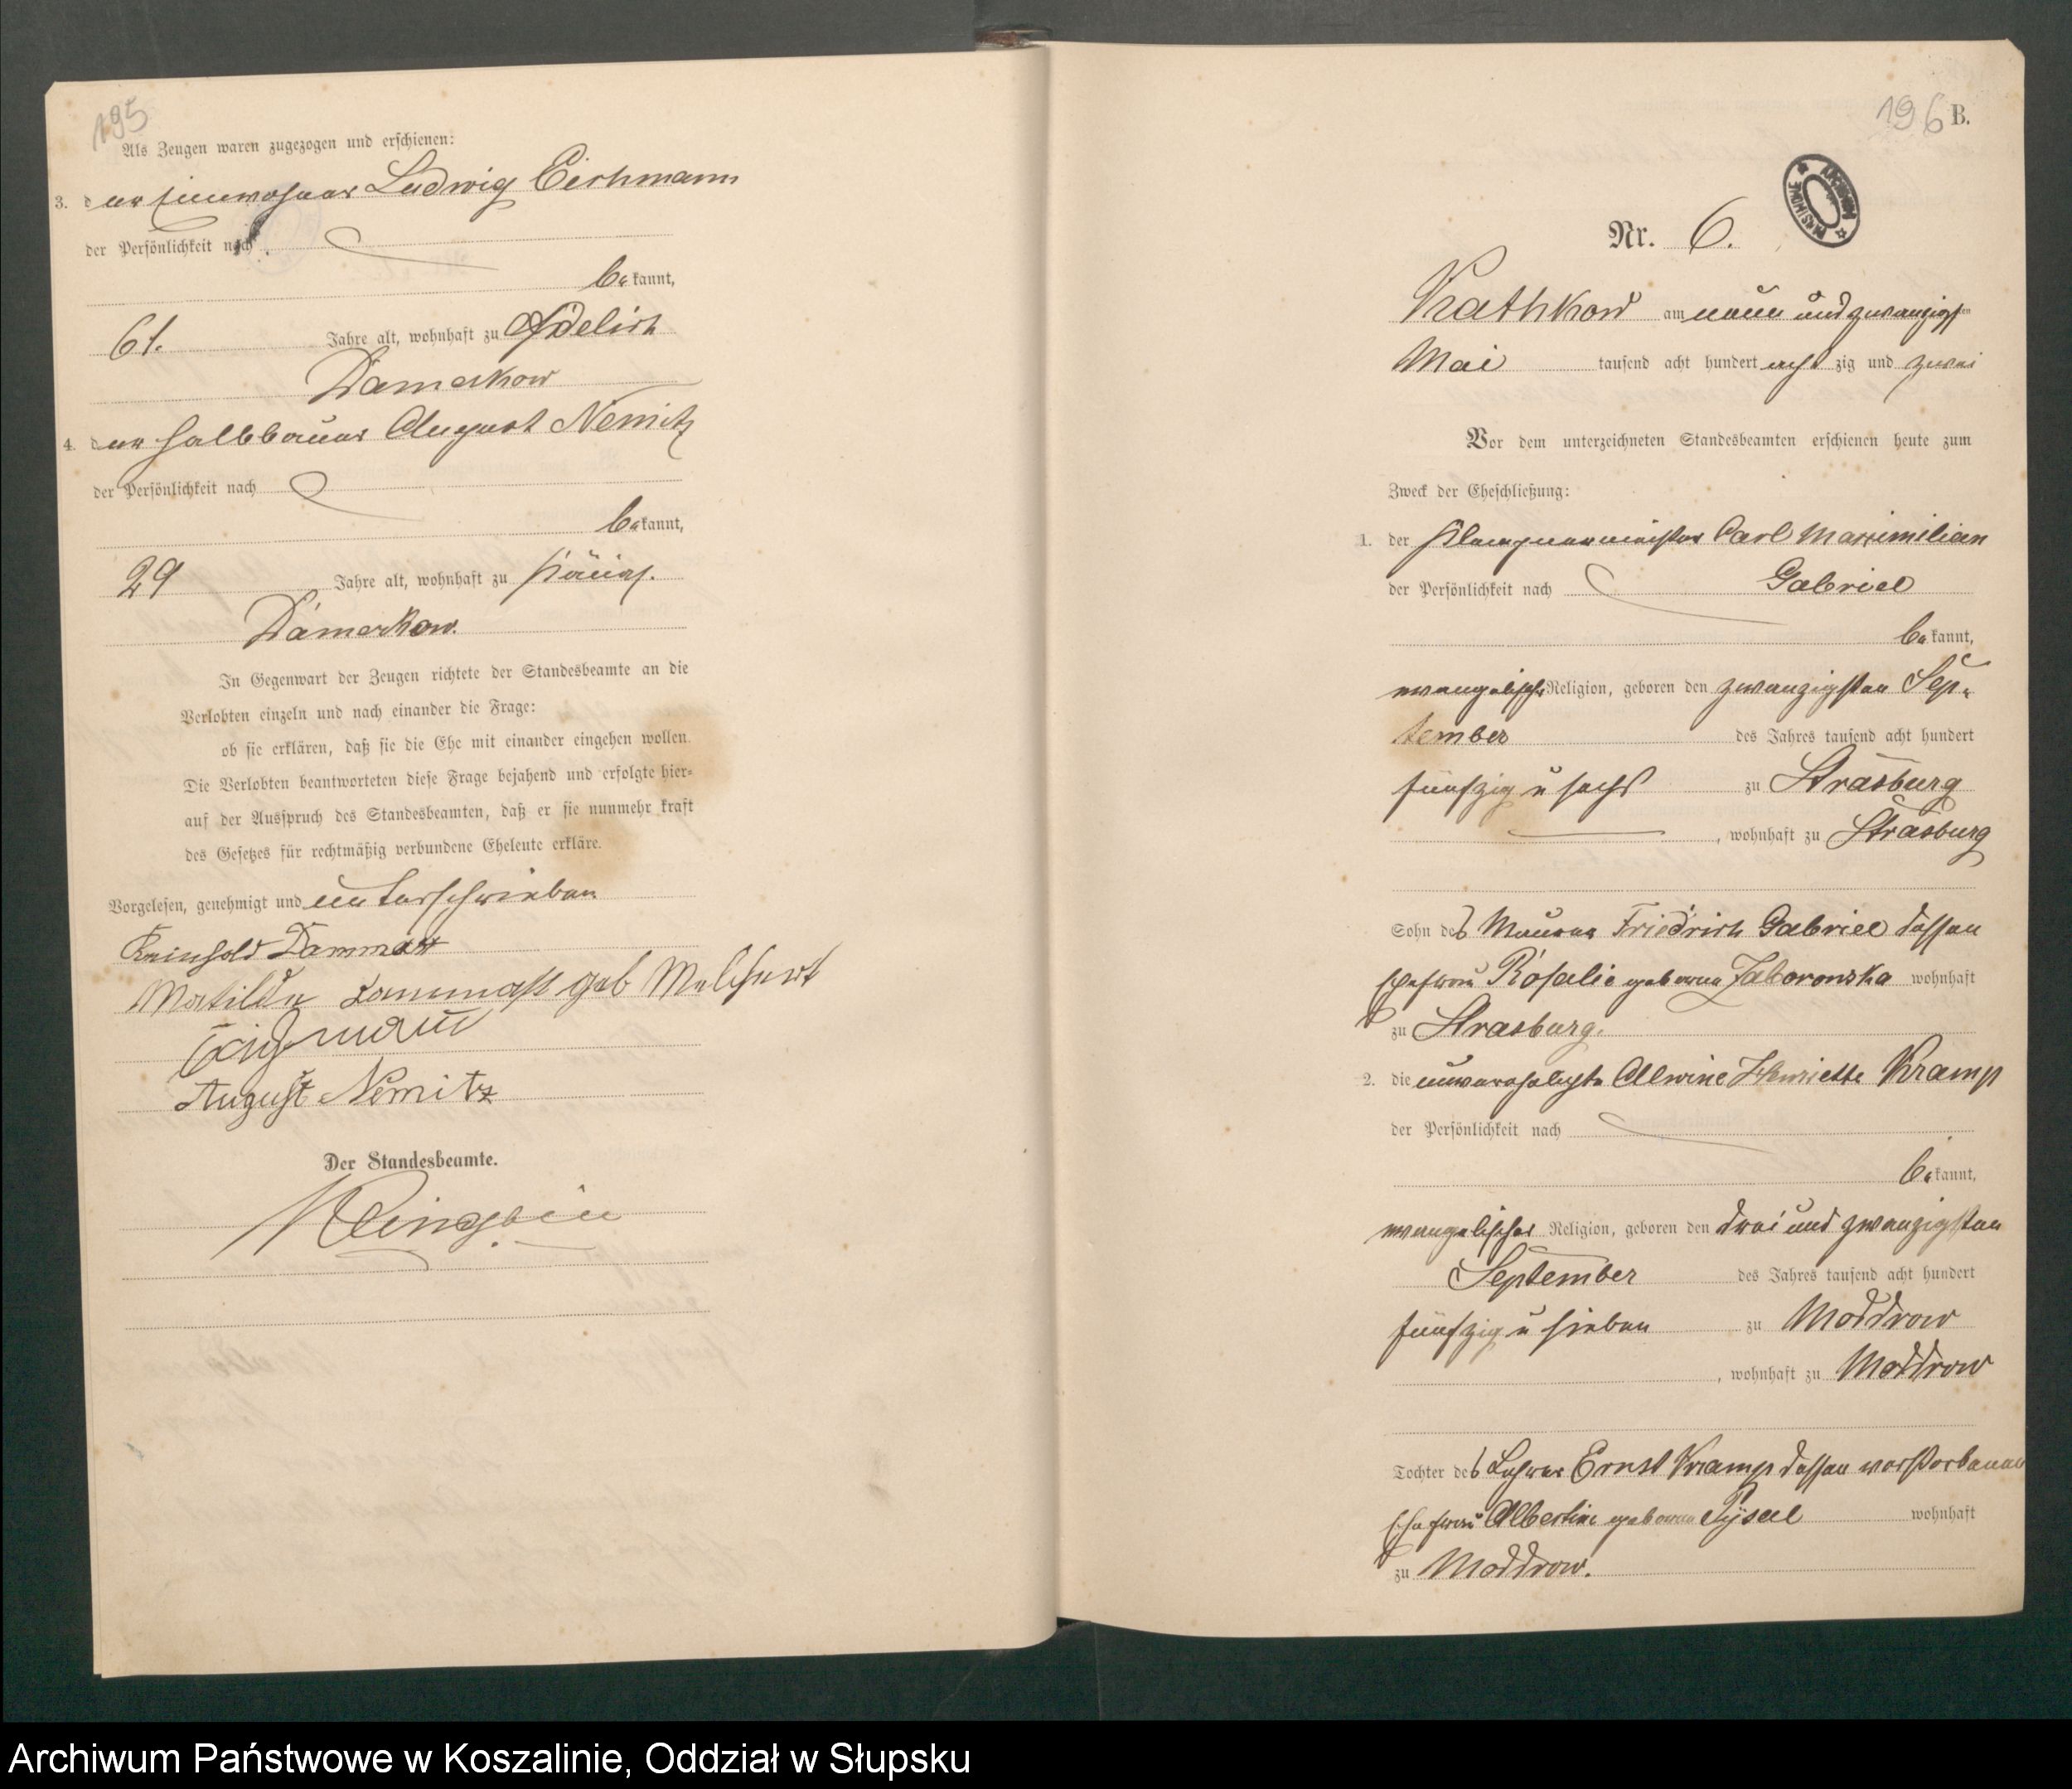 195
Als Zeugen waren zugezogen und erschienen:
3. der Einwohner Ludwig Eichmann
der Persönlichkeit nach
bekannt,
61. Jahre alt, wohnhaft zu Adelich
Damerkow
4. der Halbbauer August Nemitz
der Persönlichkeit nach
bekannt,
29 Jahre alt, wohnhaft zu Königl.
Damerkow.
In Gegenwart der Zeugen richtete der Standesbeamte an die
Verlobten einzeln und nach einander die Frage:
ob sie erklären, daß sie die Ehe mit einander eingehen wollen.
Die Verlobten beantworteten diese Frage bejahend und erfolgte hier-
auf der Ausspruch des Standesbeamten, daß er sie nunmehr kraft
des Gesetzes für rechtmäßig verbundene Eheleute erkläre.
Vorgelesen, genehmigt und unterschrieben
Reinhold Dammast
Matilde Dammast geb Melchert
Eichmann
August Nemitz
Der Standesbeamte.
196 B.
Nr. 6.
Rathkow am neun und zwanzigsten
Mai tausend acht hundert achtzig und zwei
Vor dem unterzeichneten Standesbeamten erschienen heute zum
Zweck der Eheschließung:
1. der Klempnermeister Carl Maximilian
der Persönlichkeit nach Gabriel
bekannt,
evangelischer Religion, geboren den zwanzigsten Sep-
tember des Jahres tausend acht hundert
fünfzig u sechs zu Strasburg
, wohnhaft zu Strasburg
Sohn des Maurer Friedrich Gabriel dessen
Ehefrau Rosalie geborne Zaboronska wohnhaft
zu Strasburg.
2. die unverehelichte Allwine Henriette Kramp
der Persönlichkeit nach
bekannt,
evangelischer Religion, geboren den drei und zwanzigsten
September des Jahres tausend acht hundert
fünfzig u sieben zu Moddrow
, wohnhaft zu Moddrow
Tochter des Lehrer Ernst Kramp dessen verstorbenen
Ehefrau Albertine geborne wohnhaft
zu Moddrow.
Archiwum Państwowe w Koszalinie, Oddział w Słupsku